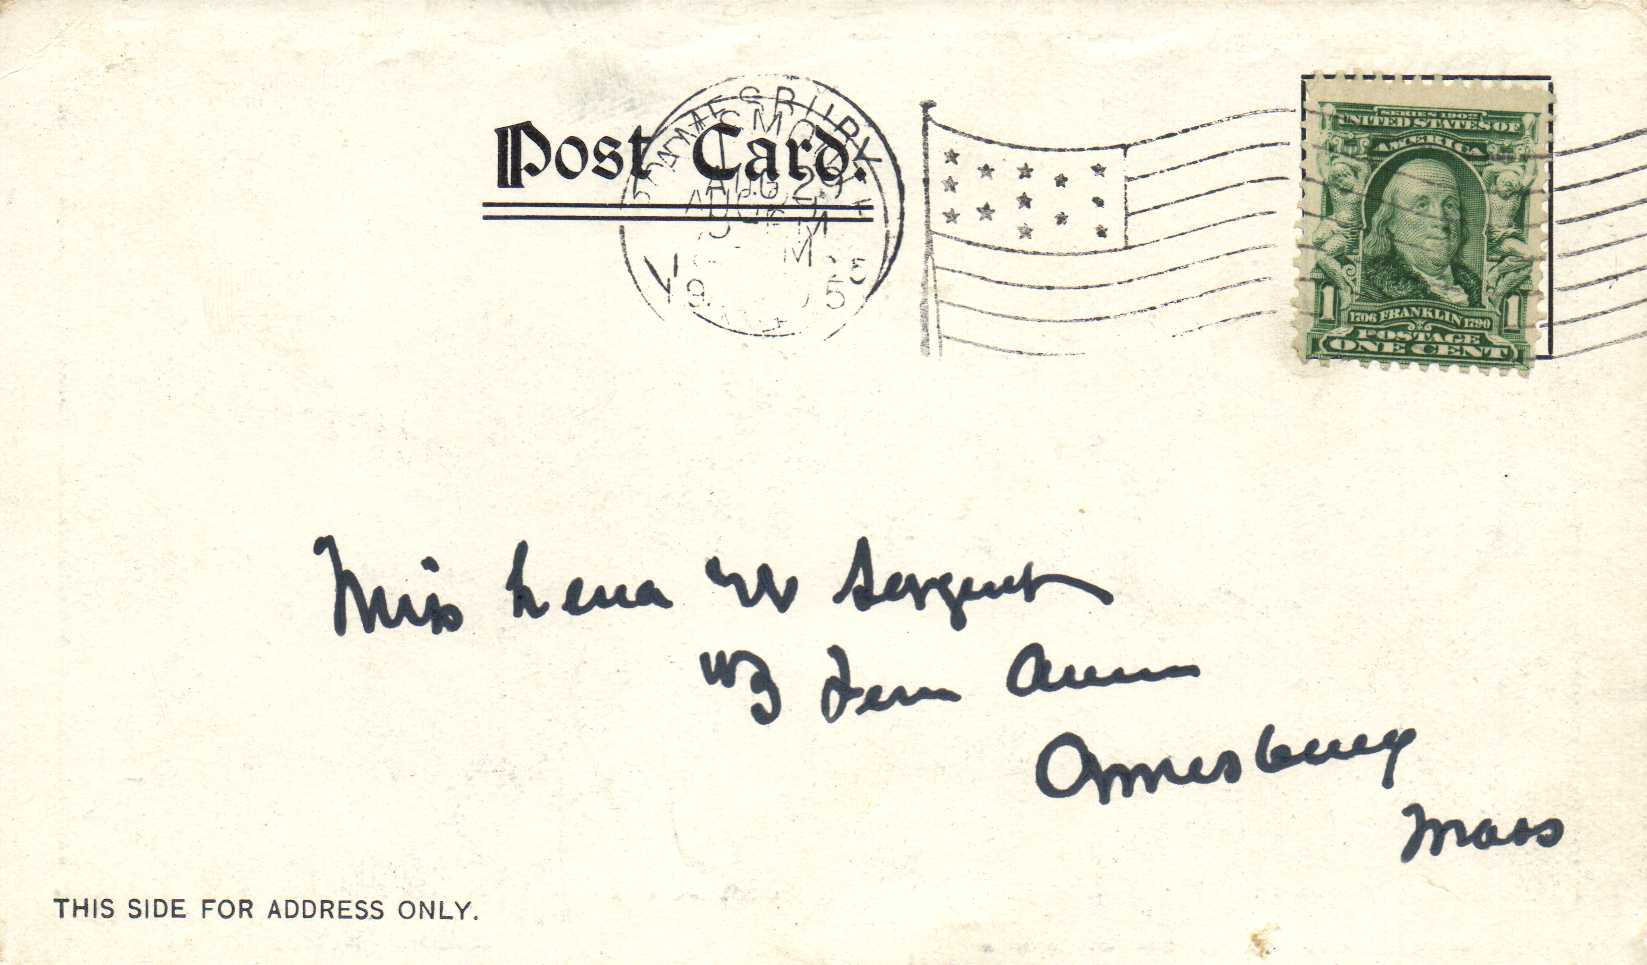 Post Card.
AMESBURY
AUG 29
SERIES 1902
UNITED STATES OF
AMERICA
1 1706 FRANKLIN 1790 1
POSTAGE
ONE CENT
Miss Lena W Sargent
Fern Avenue
Amesbury
Mass
THIS SIDE FOR ADDRESS ONLY.